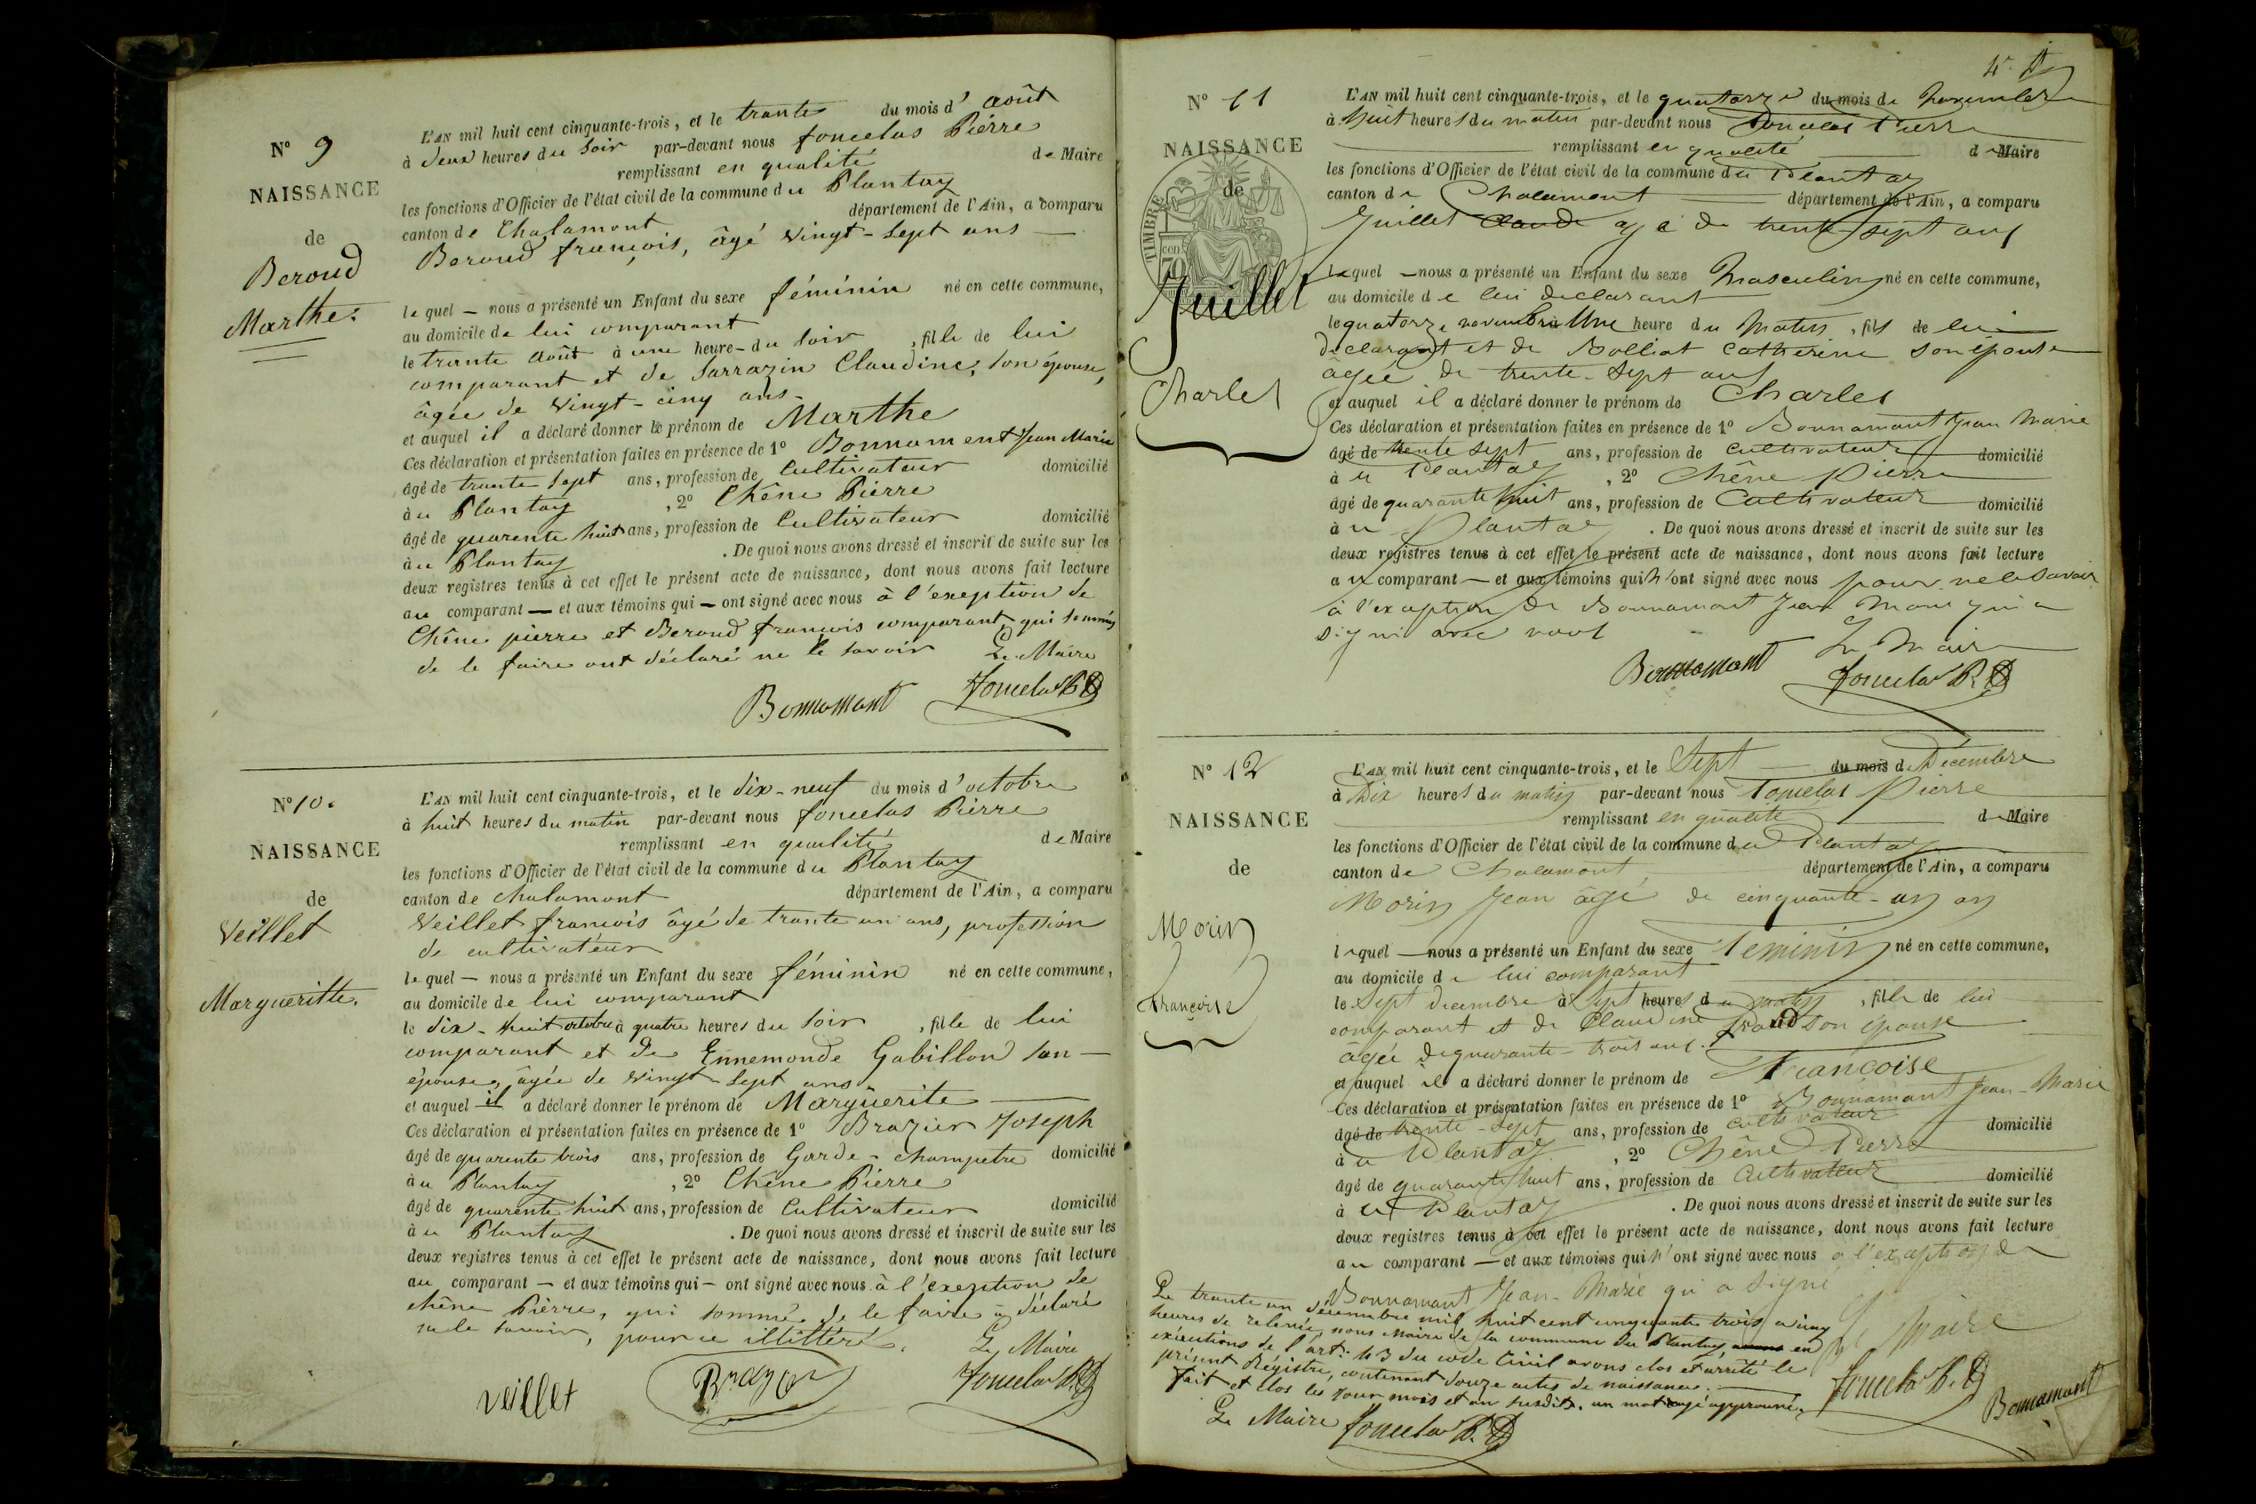 N° 9
NAISSANCE
de
Beroud
Marthe.
L'AN mil huit cent cinquante-trois, et le trante du mois d' août
à deux heures du soir par-devant nous fonselas Pierre
remplissant en qualité de Maire
les fonctions d'Officier de l'état civil de la commune du Plantay
canton de Chalamont département de l'Ain, a comparu
Beroud françois, âgé vingt-sept ans —
le quel — nous a présenté un Enfant du sexe féminin né en cette commune,
au domicile de lui comparant
le trante août à une heure - du soir, fille de lui
comparant et de Sarrazin Claudine, son épouse,
âgée de vingt-cinq ans.
et auquel il a déclaré donner le prénom de Marthe
Ces déclaration et présentation faites en présence de 1° Bonnament Jean Marie
âgé de trante sept ans, profession de Cultivateur domicilié
à u Plantay, 2° Chêne Pierre
âgé de quarente huit ans, profession de Cultivateur domicilié
à u Plantay . De quoi nous avons dressé et inscrit de suite sur les
deux registres tenus à cet effet le présent acte de naissance, dont nous avons fait lecture
au comparant — et aux témoins qui — ont signé avec nous à l'exeption de
Chêne pierre et Beroud françois comparant, qui sommés
de le faire ont déclaré ne le savoir Le Maire
Bonnamant
N° 10.
NAISSANCE
de
Veillet
Margueritte.
L'AN mil huit cent cinquante-trois, et le dix-neuf du mois d'octobre
à huit heures du matin par-devant nous fonselas Pierre
remplissant en qualité de Maire
les fonctions d'Officier de l'état civil de la commune du Plantay
canton de chalamont département de l'Ain, a comparu
Veillet françois âgé de trante un ans, profession
de cultivateur
le quel — nous a présenté un Enfant du sexe féminin né en cette commune,
au domicile de lui comparant
le dix-huit octobre à quatre heures du soir, fille de lui
comparant et de Ennemonde Gabillon son —
épouse, âgée de vingt-sept ans
et auquel il a déclaré donner le prénom de Marguerite —
Ces déclaration et présentation faites en présence de 1° Brazier Joseph
âgé de quarente trois ans, profession de Garde-champetre domicilié
à u Plantay, 2° Chêne Pierre
âgé de quarente huit ans, profession de Cultivateur domicilié
à u Plantay . De quoi nous avons dressé et inscrit de suite sur les
deux registres tenus à cet effet le présent acte de naissance, dont nous avons fait lecture
au comparant — et aux témoins qui — ont signé avec nous à l'exeption de
chêne Pierre, qui sommé de le faire a déclaré
ne le savoir, pour ce illittéré. Le Maire
Veillet
N° 11
NAISSANCE
de
TIMBRE
Juillet
Charles
L'AN mil huit cent cinquante-trois, et le quatorze du mois de Novembre
à huit heures du matin par-devant nous fonselas Pierre
remplissant en qualité de Maire
les fonctions d'Officier de l'état civil de la commune du Plantay
canton de Chalamont département de l'Ain, a comparu
Juillet Claude agé de trente sept ans
lequel — nous a présenté un Enfant du sexe Masculin né en cette commune,
au domicile de lui declarant
le quatorze novembre à Une heure du Matin, fils de lui
declarant et de Bolliat Catherine son épouse
âgée de trente-sept ans
et auquel il a déclaré donner le prénom de Charles
Ces déclaration et présentation faites en présence de 1° Bonnamant Jean Marie
âgé de trente sept ans, profession de cultivateur domicilié
à u Plantay, 2° Chêne Pierre
âgé de quarante huit ans, profession de Cultivateur domicilié
à u Plantay . De quoi nous avons dressé et inscrit de suite sur les
deux registres tenus à cet effet le présent acte de naissance, dont nous avons fait lecture
au comparant — et aux témoins qui n'ont signé avec nous pour ne le savoir
à l'exception de Bonnamant Jean Marie qui a
signé avec nous
Le Maire
Bonnamant
N° 12
NAISSANCE
de
Morin
Françoise
L'AN mil huit cent cinquante-trois, et le Sept — du mois de Décembre
à Dix heures du matin par-devant nous fonselas Pierre
remplissant en qualité de Maire
les fonctions d'Officier de l'état civil de la commune du Plantay
canton de Chalamont département de l'Ain, a comparu
Morin Jean âgé de cinquante-un an
lequel — nous a présenté un Enfant du sexe feminin né en cette commune,
au domicile de lui comparant
le Sept decembre à Sept heures du matin, fille de lui
comparant et de Claudine son épouse
âgée de quarante-trois ans.
et auquel il a déclaré donner le prénom de Françoise
Ces déclaration et présentation faites en présence de 1° Bonnamant Jean-Marie
âgé de trente-sept ans, profession de cultivateur domicilié
à u Plantay, 2° Chêne Pierre
âgé de quarante huit ans, profession de Cultivateur domicilié
à u Plantay . De quoi nous avons dressé et inscrit de suite sur les
deux registres tenus à cet effet le présent acte de naissance, dont nous avons fait lecture
au comparant — et aux témoins qui n'ont signé avec nous à l'exception de
Bonnamant Jean-Marie qui a signé
Le Maire
Le trante un decembre mil huit cent cinquante trois à cinq
heures de relevée, nous Maire de la commune du Plantay, en
exécutions de l'art: 43 du code Civil avons clos et arrêté le
présent Régistre, contenant douze actes de naissance.
Fait et Clos les jour mois et an susdits. un mot rayé approuvé.
Le Maire
Bonnamant